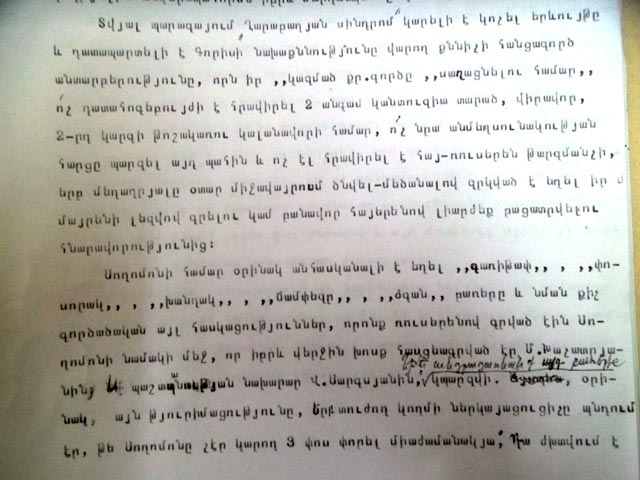 Տվյալ պարագայում Ղարաբաղյան սինդրոմ կարելի է կոչել երևույթը
և դատապարտելի է Գորիսի նախաքննությունը վարող քննիչի հանցագործ
անտարբերությունը, որն իր ,,կազմած քր.գործը ,,սաղացնելու համար,,
ո՛չ դատահոգեբույժի է հրավիրել 2 անգամ կանտուզիա տարած, վիրավոր,
2-րդ կարգի թոշակառու կալանավորի համար, ո՛չ նրա անմեղսունակության
հարցը պարզել այդ պահին և ոչ էլ հրավիրել է հայ-ռուսերեն թարգմանչի,
երբ մեղադրյալը օտար միջավայրում ծնվել-մեծանալով զրկված է եղել իր մ
մայրենի լեզվով գրելու կամ բանավոր հայերենով լիարժեք բացատրվելու
հնարավորությունից:
Սողոմոնի համար օրինակ անհասկանալի է եղել ,,գառիթափ,, , ,,փո-
սորակ,, , ,,խանդակ,, , ,,ճամփեզր,, , ,,ձգան,, բառերը և նման քիչ
գործածական այլ հասկացություններ, որոնք ռուսերենով գրված էին Սո-
ղոմոնի նամակի մեջ, որ իբրև վերջին խոսք հասցեագրված էր Մ.Խաչատրյա-
նին, պաշտպանության նախարար Վ.Սարգսյանին, կպարզվի. օրի-
նակ, այն թյուրիմացությունը, երբ տուժող կողմի ներկայացուցիչը պնդում
էր, թե Սողոմոնը չէր կարող 3 փոս փորել միաժամանակյա, Դա ժխտվում է